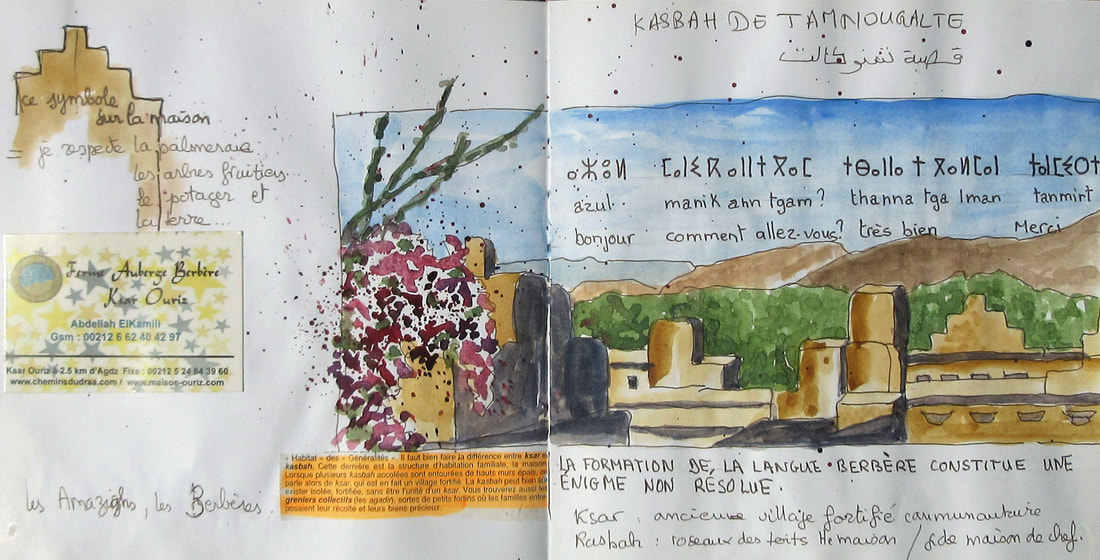 KASBAH DE TAMNOUGALTE
قصبة تمنوكالت
ce symbole
sur la maison
= je respecte la palmeraie
les arbres fruitiers...
le potager et
la terre...
Ferme Auberge Berbère
Ksar Ouriz
Abdellah ElKamili
Gsm : 00212 6 62 40 42 97
Ksar Ouriz à 2.5 km d'Agdz Fixe : 00212 5 24 84 39 60
www.cheminsdudraa.com / www.maison-ouriz.com
les Amazighs, les Berbères.
ⴰⵣⵓⵍ ⵎⴰⵏⵉⴽ ⵜⴳⴰⵎ ⵜⴰⵏⵎⵉⵔⵜ
azul.. manik ahn tgam ? thanna tga lman tanmirt
bonjour comment allez-vous? très bien Merci
« Habitat » des « Généralités ». Il faut bien faire la différence entre ksar e
kasbah. Cette dernière est la structure d'habitation familiale, la maison
Lorsque plusieurs kasbah accolées sont entourées de hauts murs épais, o
parle alors de ksar, qui est en fait un village fortifié. La kasbah peut bien sû
exister isolée, fortifiée, sans être l'unité d'un ksar. Vous trouverez aussi le
greniers collectifs (les agadir), sortes de petits fortins où les familles entre
posaient leur récolte et leurs biens précieux.
LA FORMATION DE LA LANGUE BERBÈRE CONSTITUE UNE
ÉNIGME NON RÉSOLUE.
Ksar : ancienne village fortifié communautaire
Kasbah : roseaux des toits maison / maison de chef.